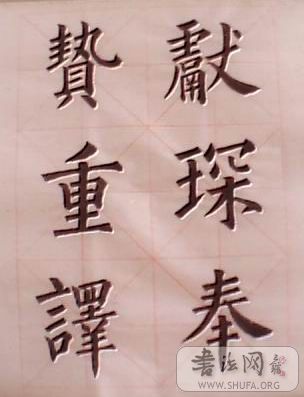 獻琛奉
贄重譯
书法网
WWW.SHUFA.ORG